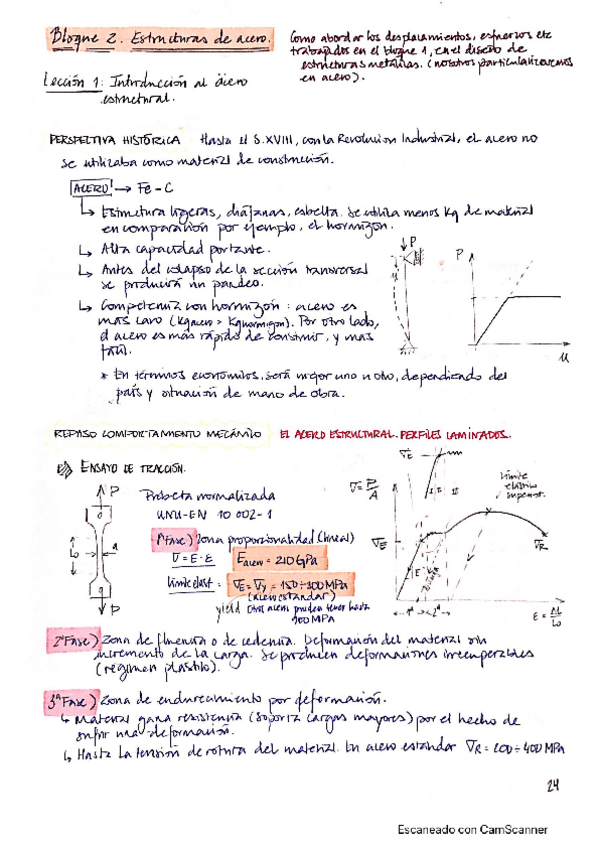 Bloque 2. Estructuras de acero.
Como abordar los desplazamientos, esfuerzos etc
trabajados en el bloque 1, en el diseño de
estructuras metálicas. (nosotros particularizaremos
en acero).
Lección 1: Introducción al acero
estructural.
PERSPECTIVA HISTÓRICA Hasta el S.XVIII, con la Revolución Industrial, el acero no
se utilizaba como material de construcción.
ACERO → Fe-C
Estructura ligeras, diáfanas, esbelta. Se utiliza menos Kg de material
en comparación por ejemplo, el hormigón.
Alta capacidad portante.
Antes del colapso de la sección transversal
se producirá un pandeo.
Competencia con hormigón: acero es
más caro (Kg acero > Kg hormigón). Por otro lado,
el acero es más rápido de construir, y más
fácil.
* En términos económicos, será mejor uno u otro, dependiendo del
país y situación de mano de obra.
P
P
u
REPASO COMPORTAMIENTO MECÁNICO EL ACERO ESTRUCTURAL. PERFILES LAMINADOS.
ENSAYO DE TRACCIÓN.
P
Lo
a
P
Probeta normalizada
UNU-EN 10 002-1
1ªFase) Zona proporcionalidad (lineal)
σ = E·ε Eacero = 210 GPa
límite elást = σE = σy = 150÷300 MPa
(acero estándar)
yield otros aceros pueden tener hasta
900 MPa
σ = P/A
σE
σE
I II III
límite
elástico
superior.
σR
E
1ª 2ª
ε = ΔL/Lo
2ªFase) Zona de fluencia o de cedencia. Deformación del material sin
incremento de la carga. Se producen deformaciones irrecuperables
(régimen plástico).
3ªFase) Zona de endurecimiento por deformación.
Material gana resistencia (soporta cargas mayores) por el hecho de
sufrir una deformación.
Hasta la tensión de rotura del material. En acero estándar σR = 200÷400 MPa
24
Escaneado con CamScanner